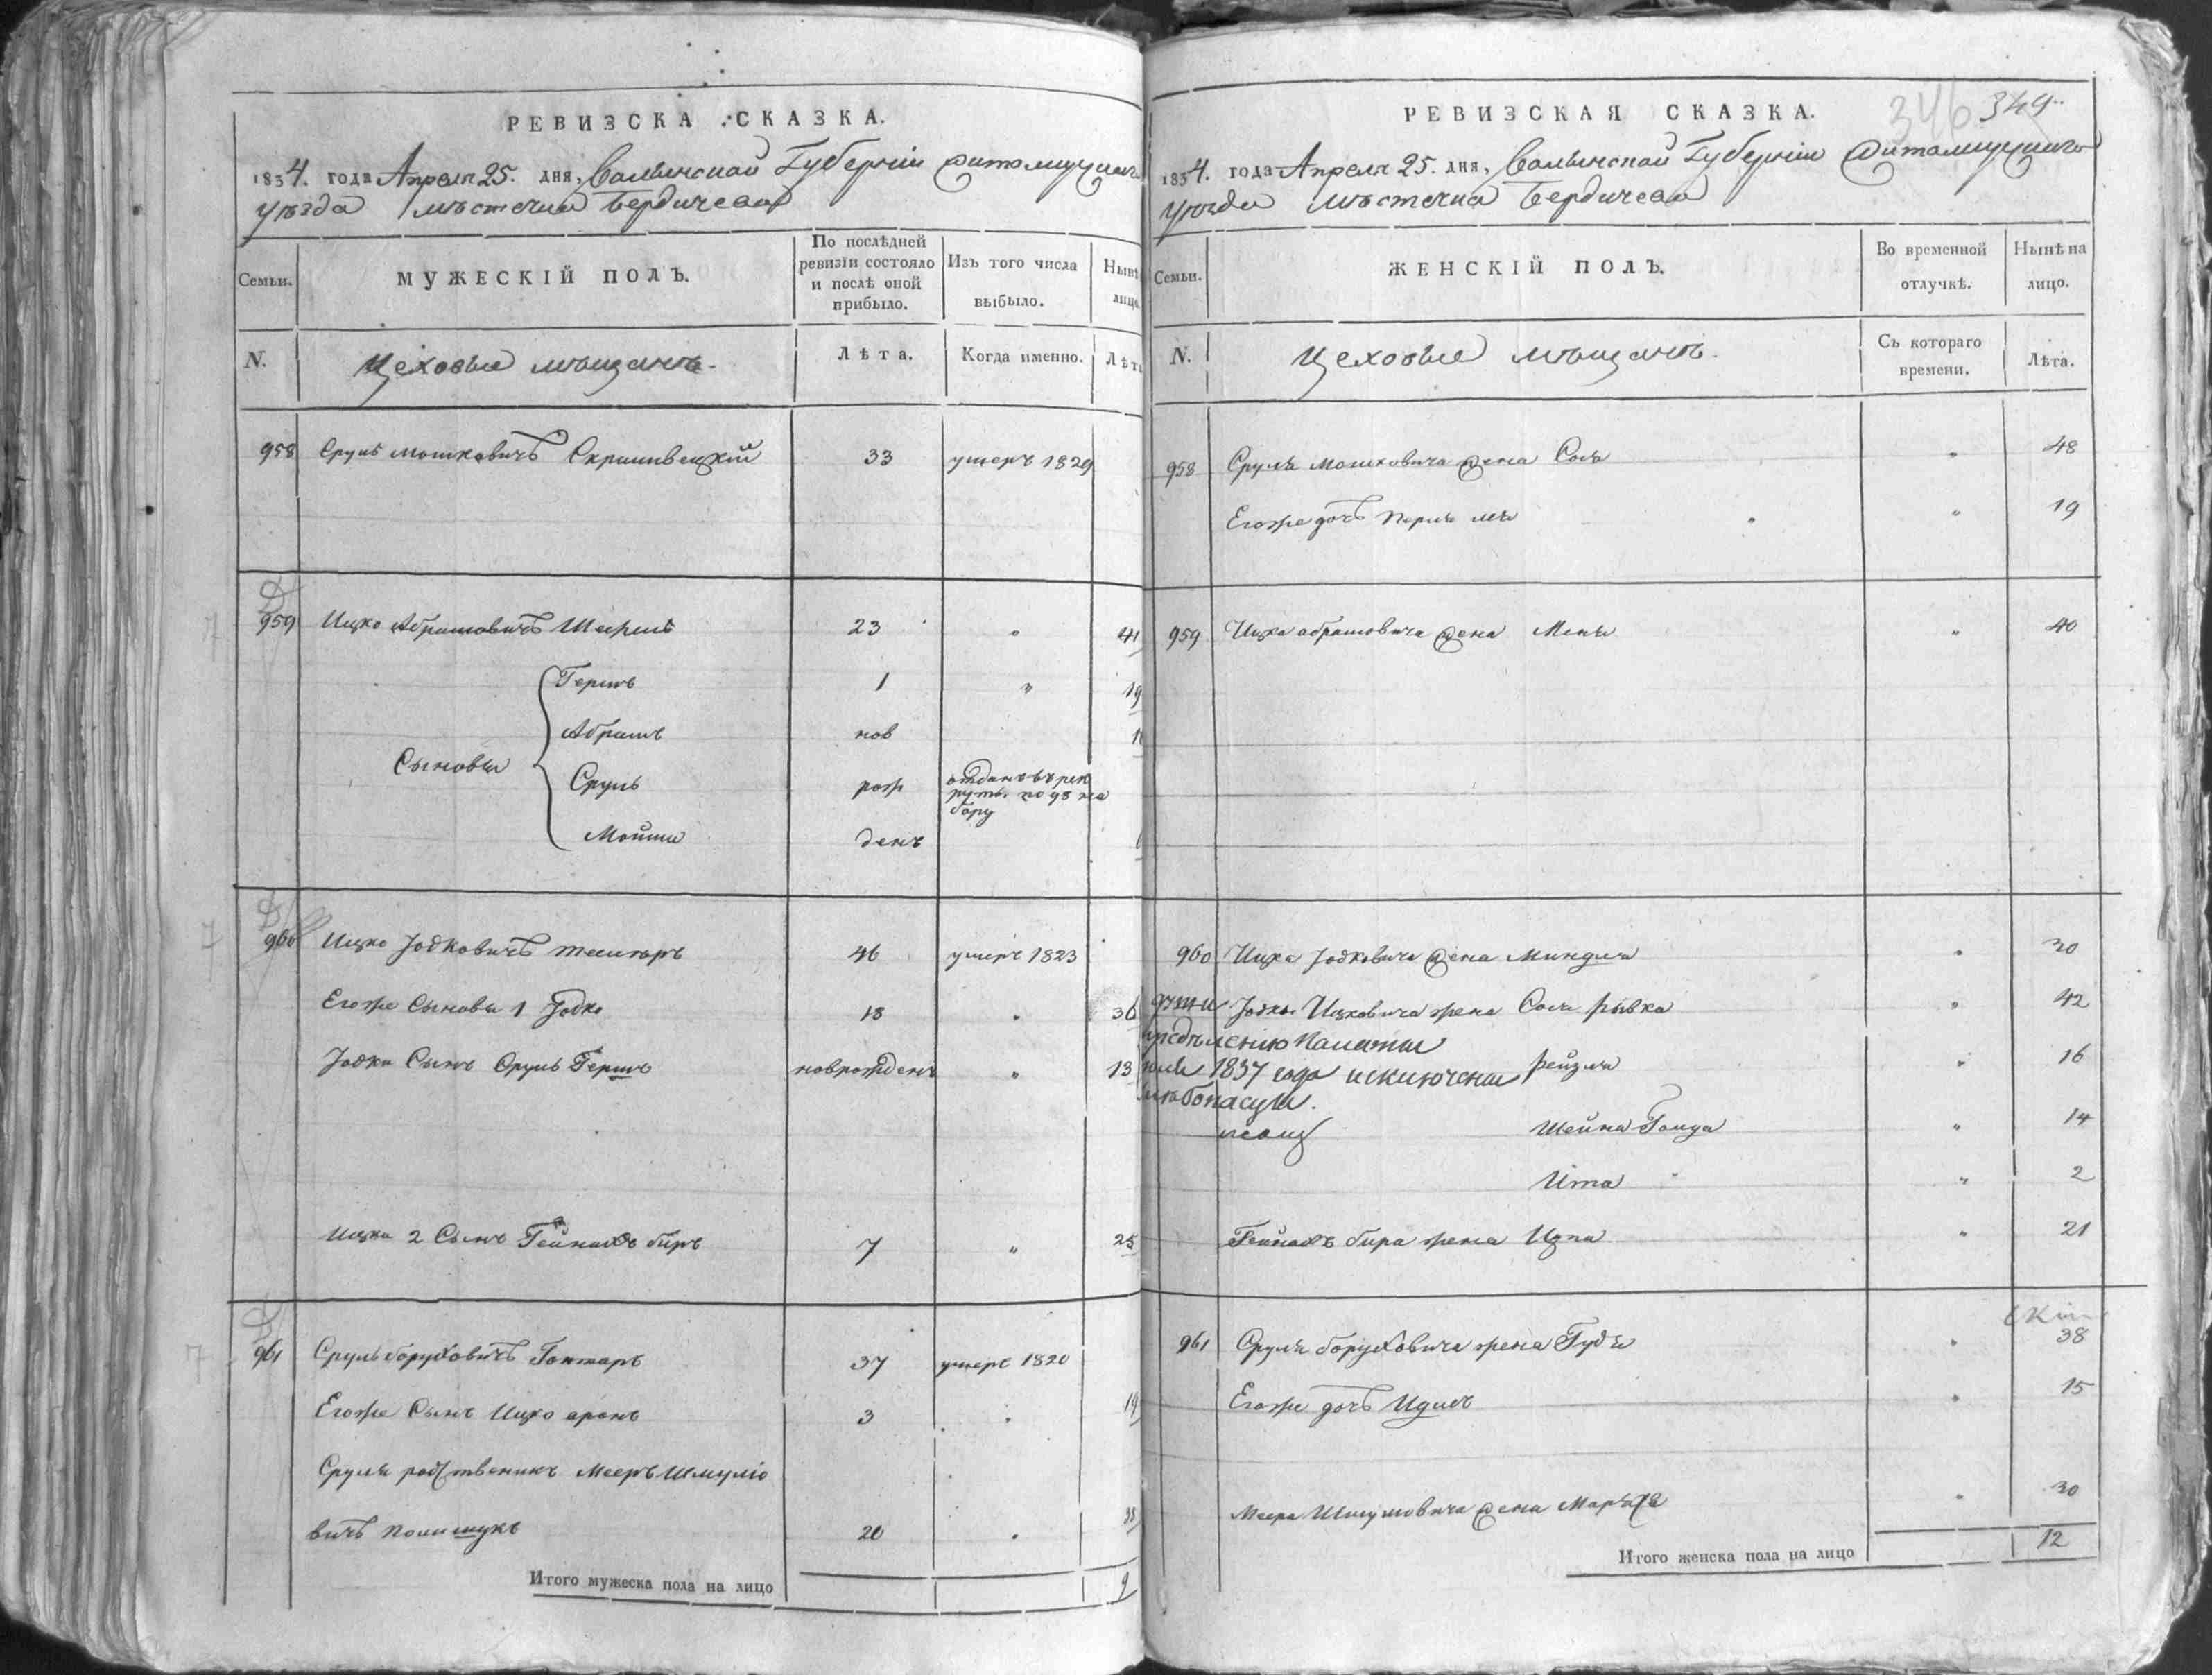 РЕВИЗСКА СКАЗКА.
1834. года Апреля 25. дня, Волынской Губернии Житомирскаго
Уѣзда Мѣстечка Бердичева
Семьи.
МУЖЕСКІЙ ПОЛЪ.
По послѣдней ревизіи состояло и послѣ оной прибыло.
Изъ того числа выбыло.
Нынѣ лицо
N.
Цеховые мѣщанъ.
Лѣта.
Когда именно.
Лѣт
958 Сруль Мошковичъ 33 умеръ 1829
959 Ицко Абрамовичъ 23 " 41
Гершъ 1 " 19
Абрамъ нов
Сыновья
Сруль рож отданъ въ рек
руты по 98 на
бору
Мошка денъ
960 Ицко Јосковичъ 46 умеръ 1823
Егоже Сыновья 1 Јосько 18 " 36
Јоська Сынъ Сруль Гершъ новрожденъ " 13
Ицка 2 Сынъ Гейнахъ биръ 7 " 25
961 Сруль боруховичъ Гонтаръ 37 умеръ 1820
Егоже Сынъ Ицко аронъ 3 " 19
Сруля родственикъ Мееръ Шмуліо
вичъ Полищукъ 20 "
Итого мужеска пола на лицо 9
РЕВИЗСКАЯ СКАЗКА.
346 349
1834. года Апреля 25. дня, Волынской Губерніи Житомирскаго
Уѣзда Мѣстечка Бердичева
Семьи.
ЖЕНСКІЙ ПОЛЪ.
Во временной отлучкѣ.
Нынѣ на лицо.
N.
Цеховые мѣщанъ.
Съ котораго времени.
Лѣта.
958 Сруля Мошковича жена Сося " 48
Егоже дочь " 19
959 Ицка абрамовича жена Меня " 40
960 Ицка Јосковича жена Миндля " 30
Јоська Ицковича жена Сося рывка " 42
1837 года исключены
рейзля " 16
Шейна Голда " 14
Ита " 2
Гейнахъ бира жена Ципа " 21
961 Сруля боруховича жена Гудя " 38
Егоже дочь " 15
Меера Шмулиовича жена " 30
Итого женска пола на лицо 12